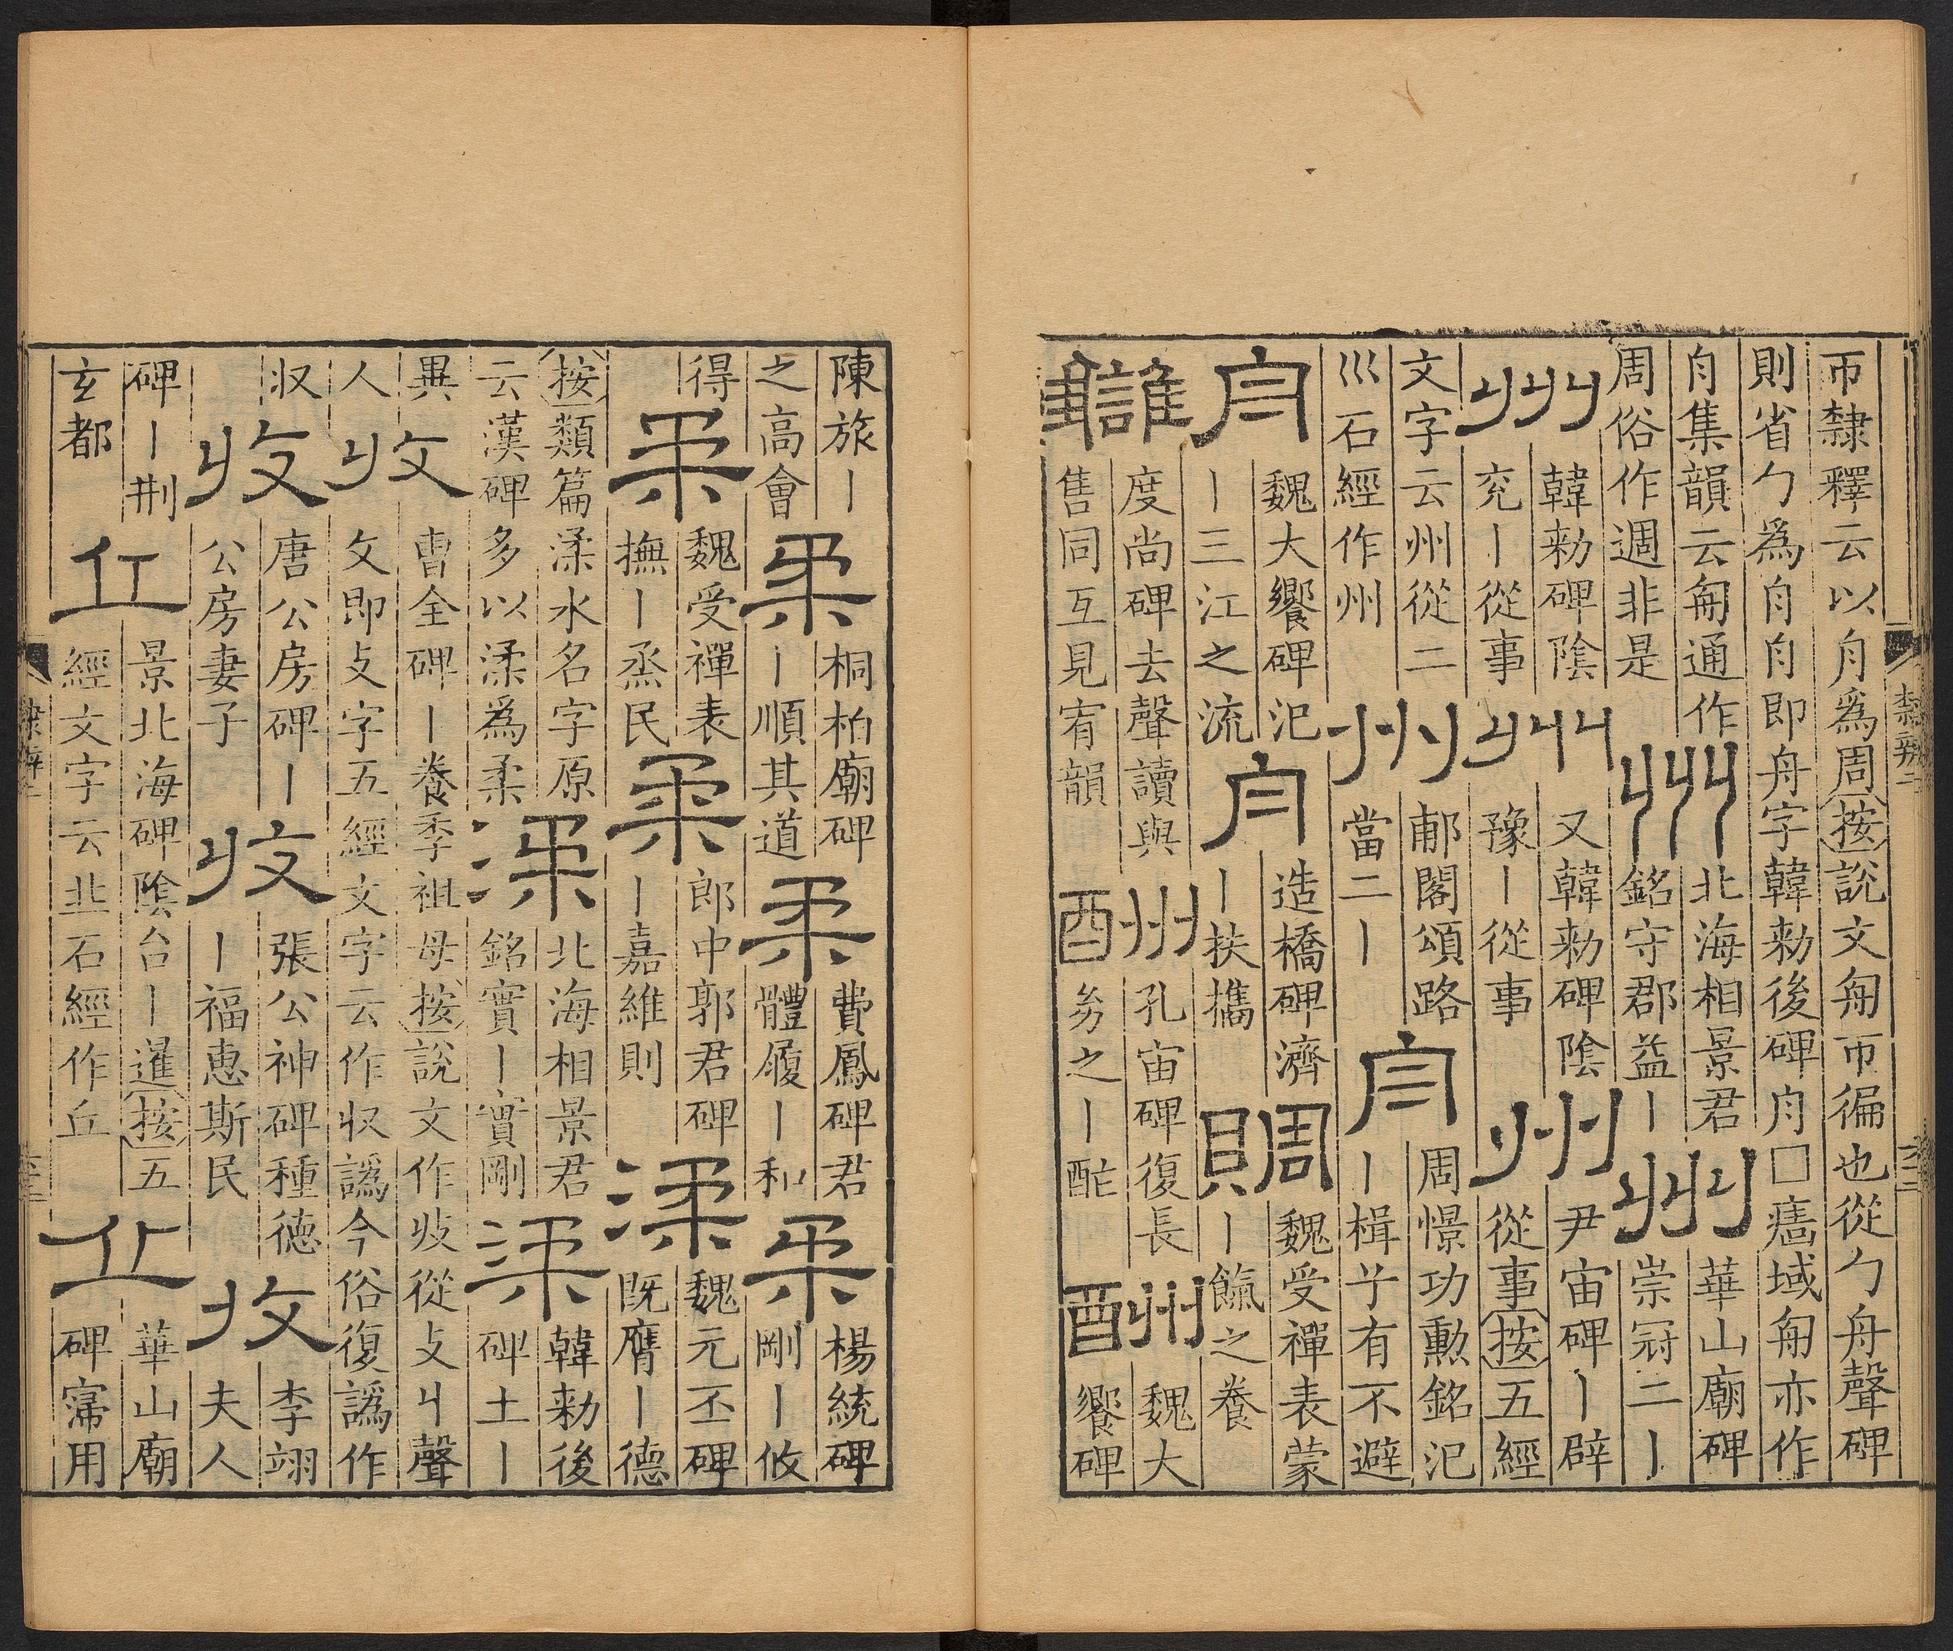 帀隸釋云以舟爲周按說文匊帀徧也從勹舟聲碑
則省勹爲舟舟即舟字韓勑後碑舟□癋域匊亦作
舟集韻云匊通作
周俗作週非是
州
北海相景君
銘守郡益丨
州
華山廟碑
崇冠二丨
州
韓勑碑陰
兖丨從事
州
又韓勑碑陰
豫丨從事
州
尹宙碑丨辟
從事按五經
文字云州從二
巛石經作州
州
郙閣頌路
當二丨
舟
周憬功勲銘汜
丨楫兯有不避
舟
魏大饗碑汜
丨三江之流
舟
造橋碑濟
丨扶攜
賙
魏受禪表蒙
丨餼之養
讎
度尚碑去聲讀與
售同互見宥韻
酬
孔宙碑復長
㓜之丨酢
酬
魏大
饗碑
隸辨二
六十二
陳旅丨
之高會
柔
桐柏廟碑
丨順其道
柔
費鳳碑君
體履丨和
柔
楊統碑
剛丨攸
得
柔
魏受禪表
撫丨烝民
柔
郎中郭君碑
丨嘉維則
渘
魏元丕碑
既膺丨德
按類篇渘水名字原
云漢碑多以渘爲柔
渘
北海相景君
銘實丨實剛
渘
韓勑後
碑土丨
異
人
收
曹全碑丨養季祖母按說文作收從攴丩聲
攵即攴字五經文字云作収譌今俗復譌作
収
收
唐公房碑丨
公房妻子
收
張公神碑種德
丨福惠斯民
收
李翊
夫人
碑丨荆
玄都
丘
景北海碑陰台丨暹按五
經文字云丠石經作丘
丘
華山廟
碑寗用